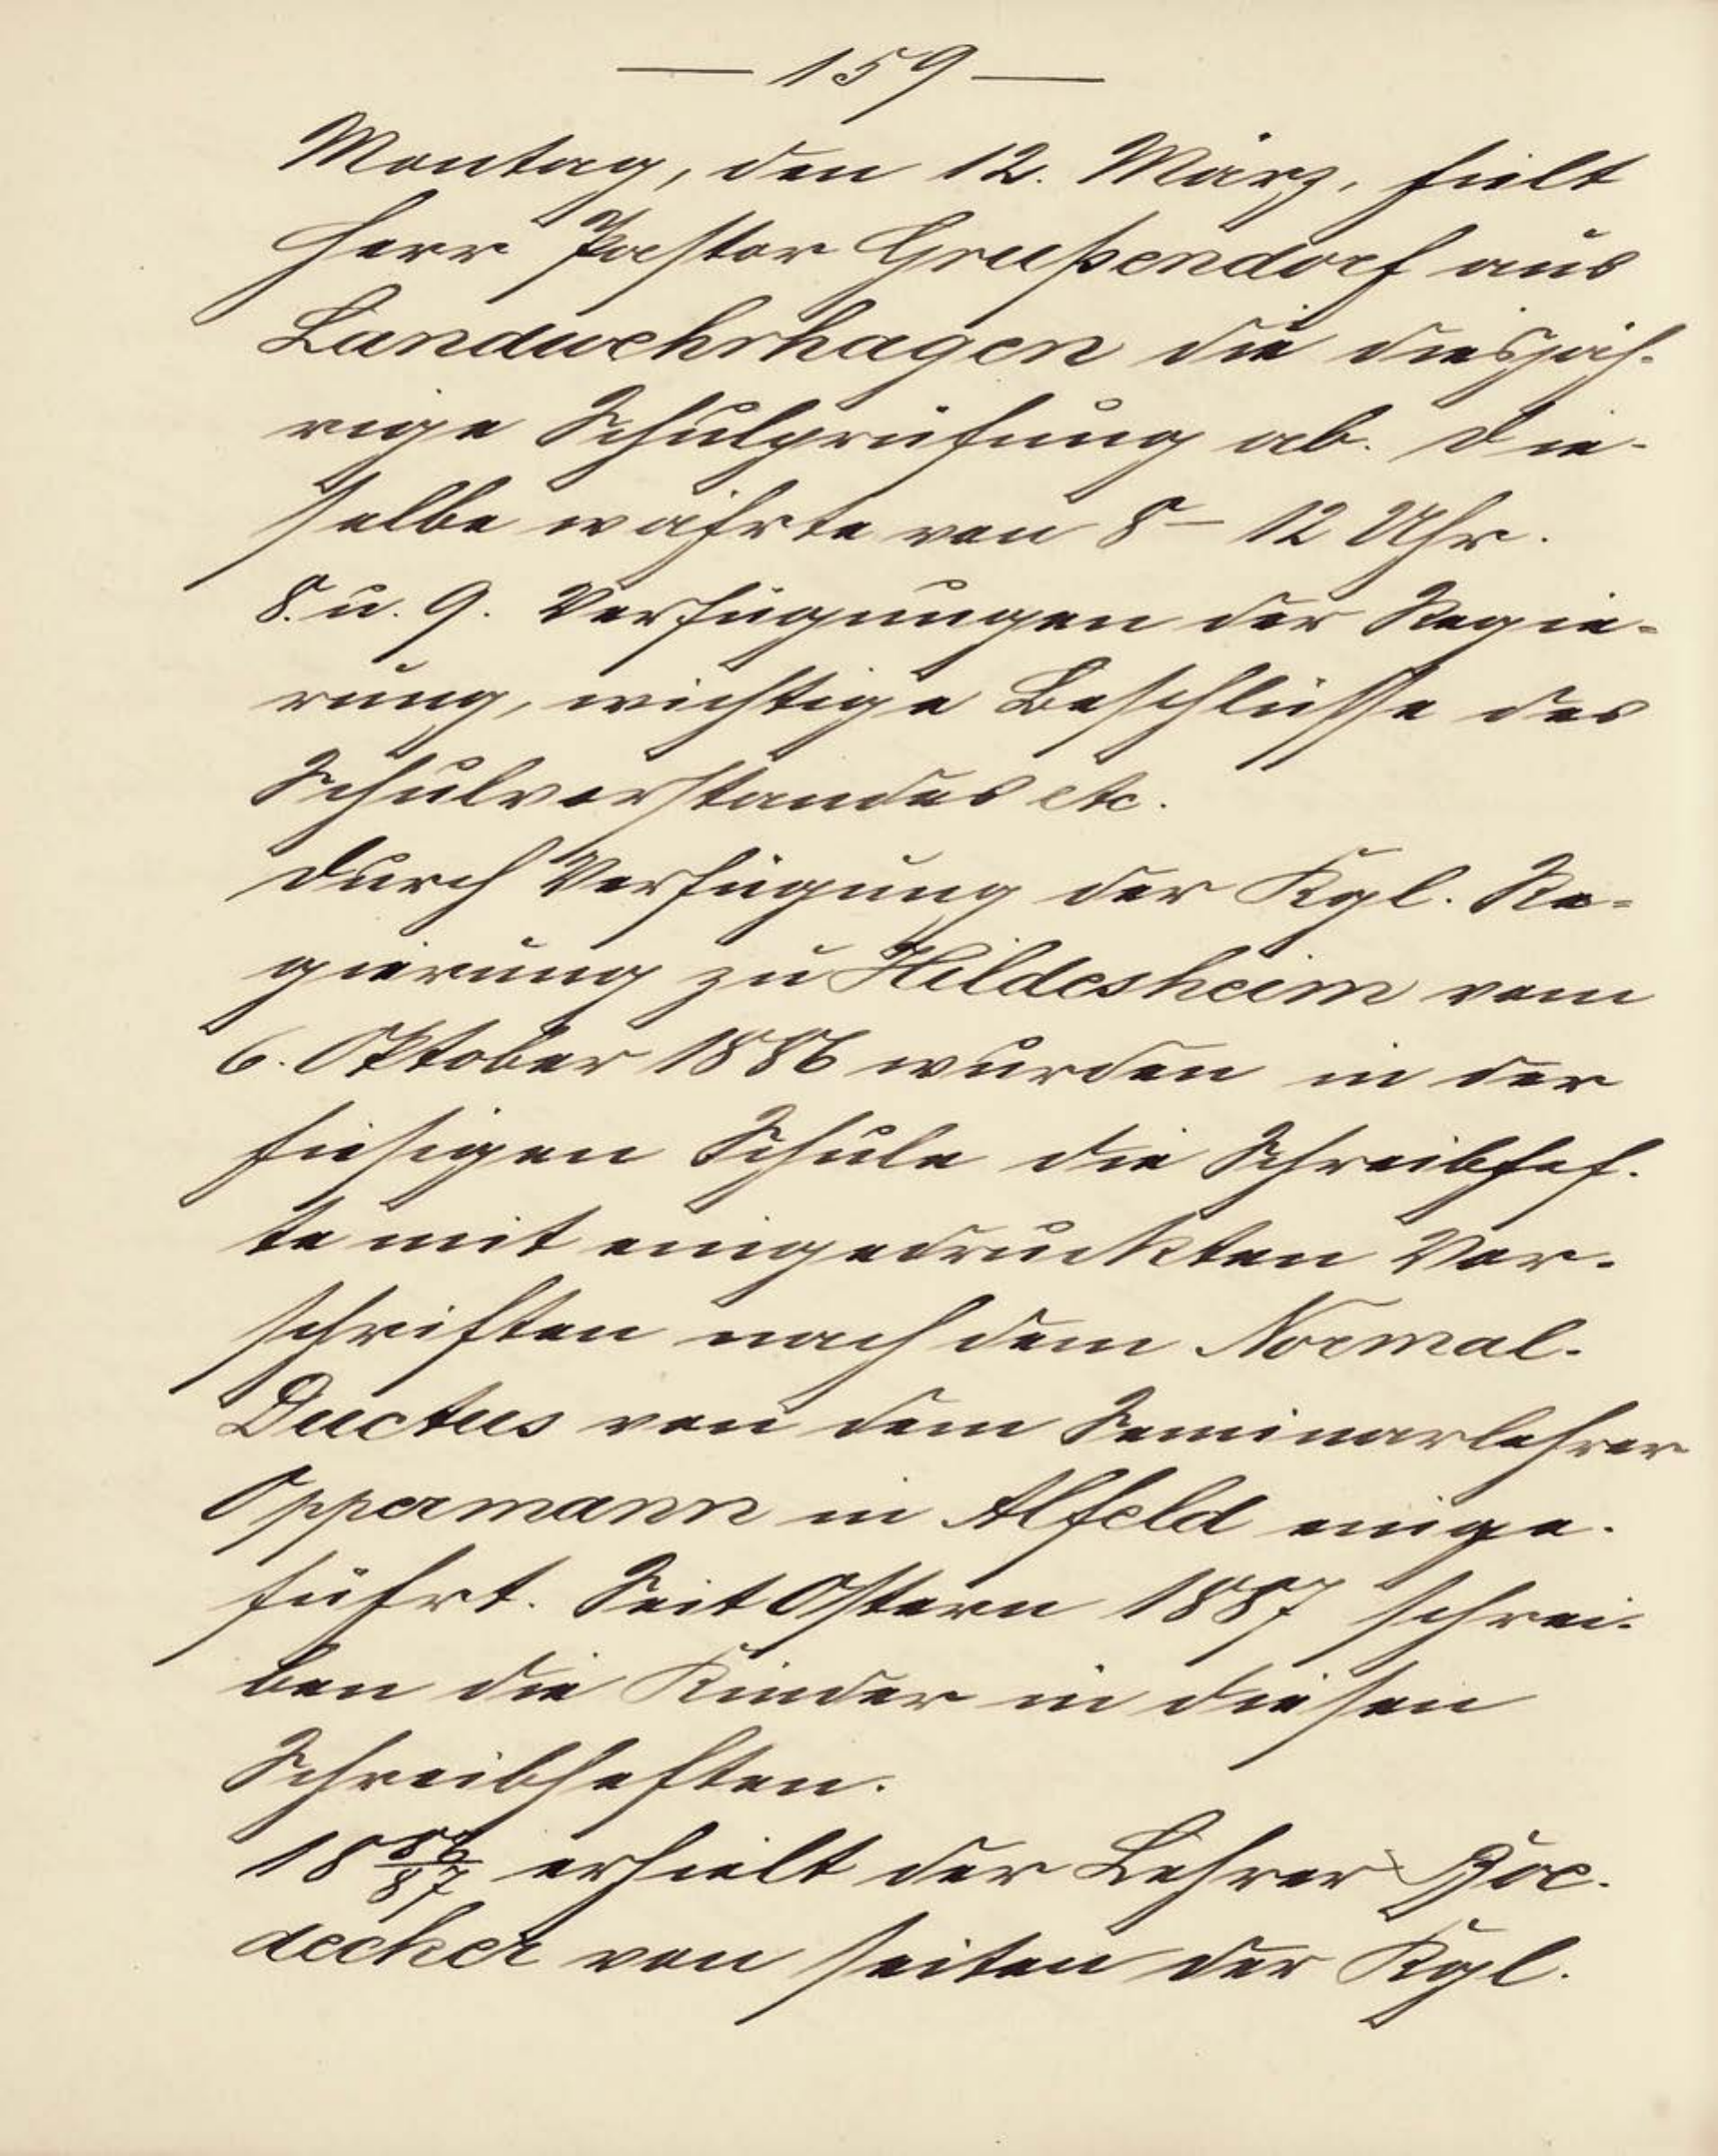 — 159 —
Montag, den 12. März, hielt
Herr Pastor Grußendorf aus
Landwehrhagen die diesjäh-
rige Schulprüfung ab. Die-
selbe währte von 8 – 12 Uhr.
8. u. 9. Verfügungen der Regie-
rung, wichtige Beschlüsse des
Schulvorstandes etc.
Durch Verfügung der Kgl. Re-
gierung zu Hildesheim vom
6. Oktober 1886 wurden in der
hiesigen Schule die Schreibhef-
te mit eingedruckten Vor-
schriften nach dem Normal-
Ductus von dem Seminarlehrer
Oppermann in Alfeld einge-
führt. Seit Ostern 1887 schrei-
ben die Kinder in diesen
Schreibheften.
18 86/87 erhielt der Lehrer Böe-
decker von seiten der Kgl.